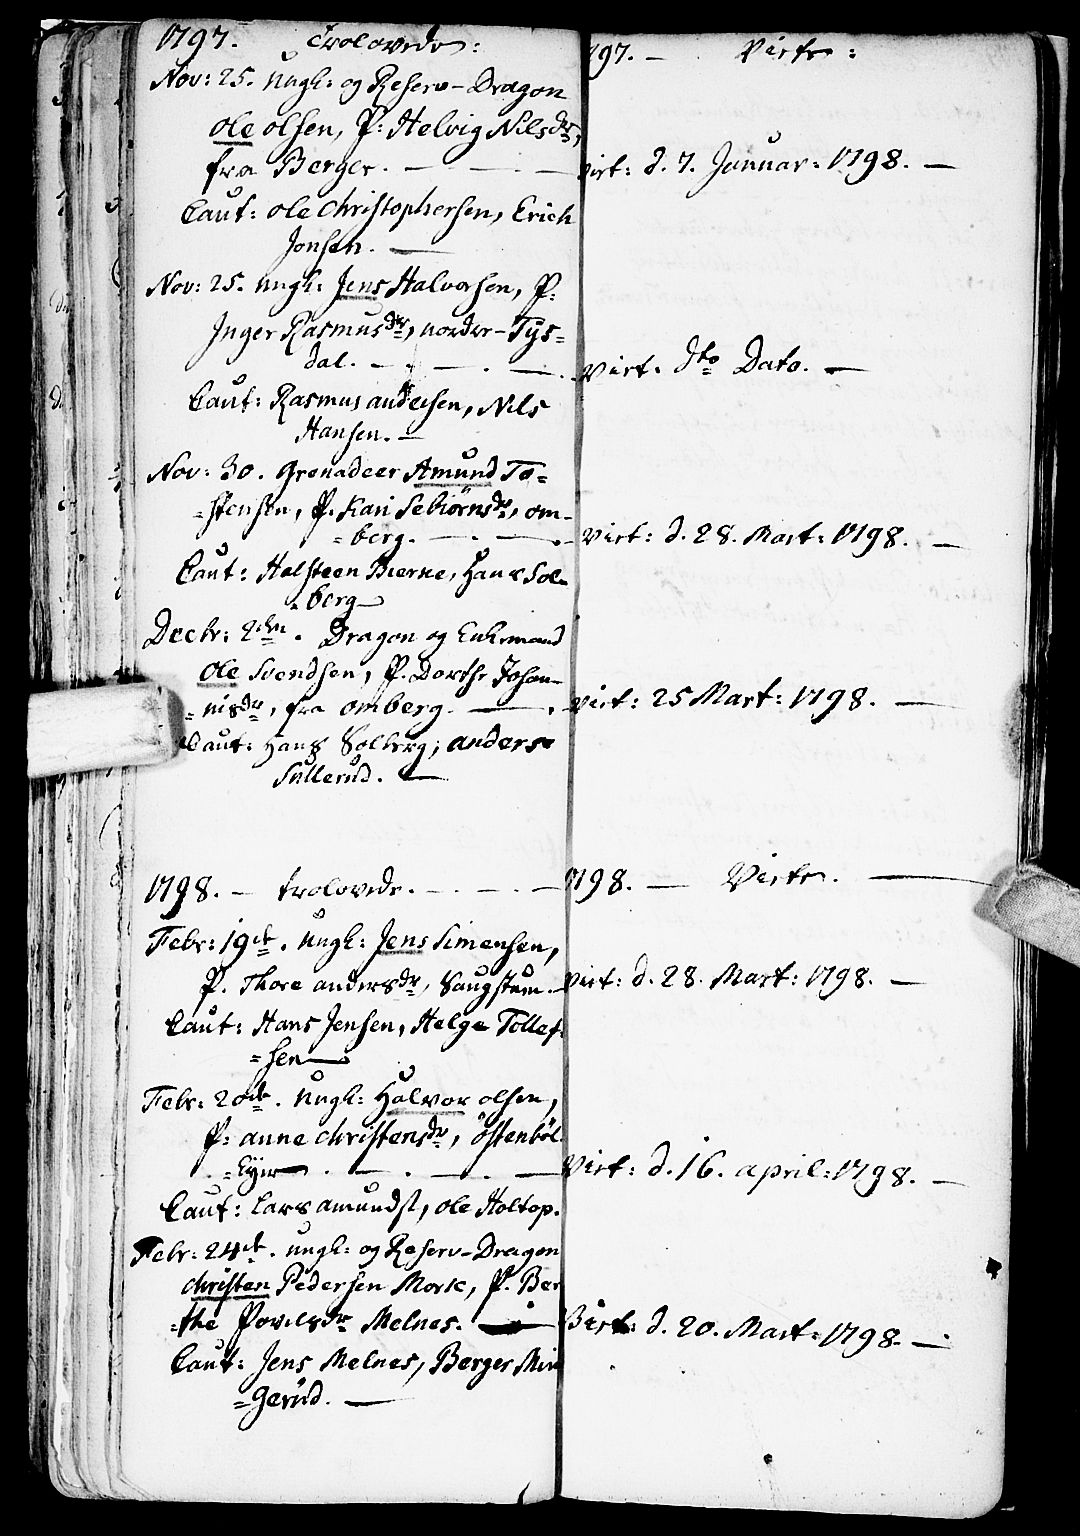 1797. Trolovede:
Nov: 25. Ungk: og Reserv-Dragon
Ole Olsen, P: Helvig Nilsdr,
fra Berger. — — —
Caut: Ole Christophersen, Erich
Jonsen. —
Nov: 25. Ungk: Jens Halvorsen, P:
Inger Rasmusdr, nordre-Tys=
dal. — . — . —
Caut: Rasmus andersen, Nils
Hansen. —
Nov: 30. Grenadeer Amund To=
=stensen, P. Kari Sebiörnsdr, om-
=berg. — . — .
Caut: Halsteen Bierke, Hans Sol=
=berg —
Decbr: 2den. Dragon og Enkemand
Ole Svendsen, P. Dorthe Johan-
=nisdr, fra omberg. — .
Caut: Hans Solberg, anders
Sullerud. —
1798. — trolovede. — . — . —
Febr: 19de. Ungk: Jens Simensen,
P. Thore andersdr, Saugstuen. —
Caut: Hans Jensen, Helge Tollef=
=sen —
Febr: 20de. Ungk: Halvor olsen,
P: anne Christensdr, östenböl
=Eyer — . — . — . —
Caut: Lars amundst, ole Holtop.
Febr: 24de. ungk: og Reserv-Dragon
Christen Pedersen Mork, P. Ber
=the Povelsdr Melnes. —
Caut: Jens Melnes, Berger Min
=gerud. —
797. — Viete:
Viet: d. 7. Januar: 1798. —
Viet. dto Dato. —
Viet: d. 28. Mart: 1798. —
Viet: 25 Mart: 1798. —
1798. — Viete. —
Viet: d. 28. Mart: 1798. —
Viet: d. 16. april: 1798. —
Viet: d. 20. Mart: 1798. —